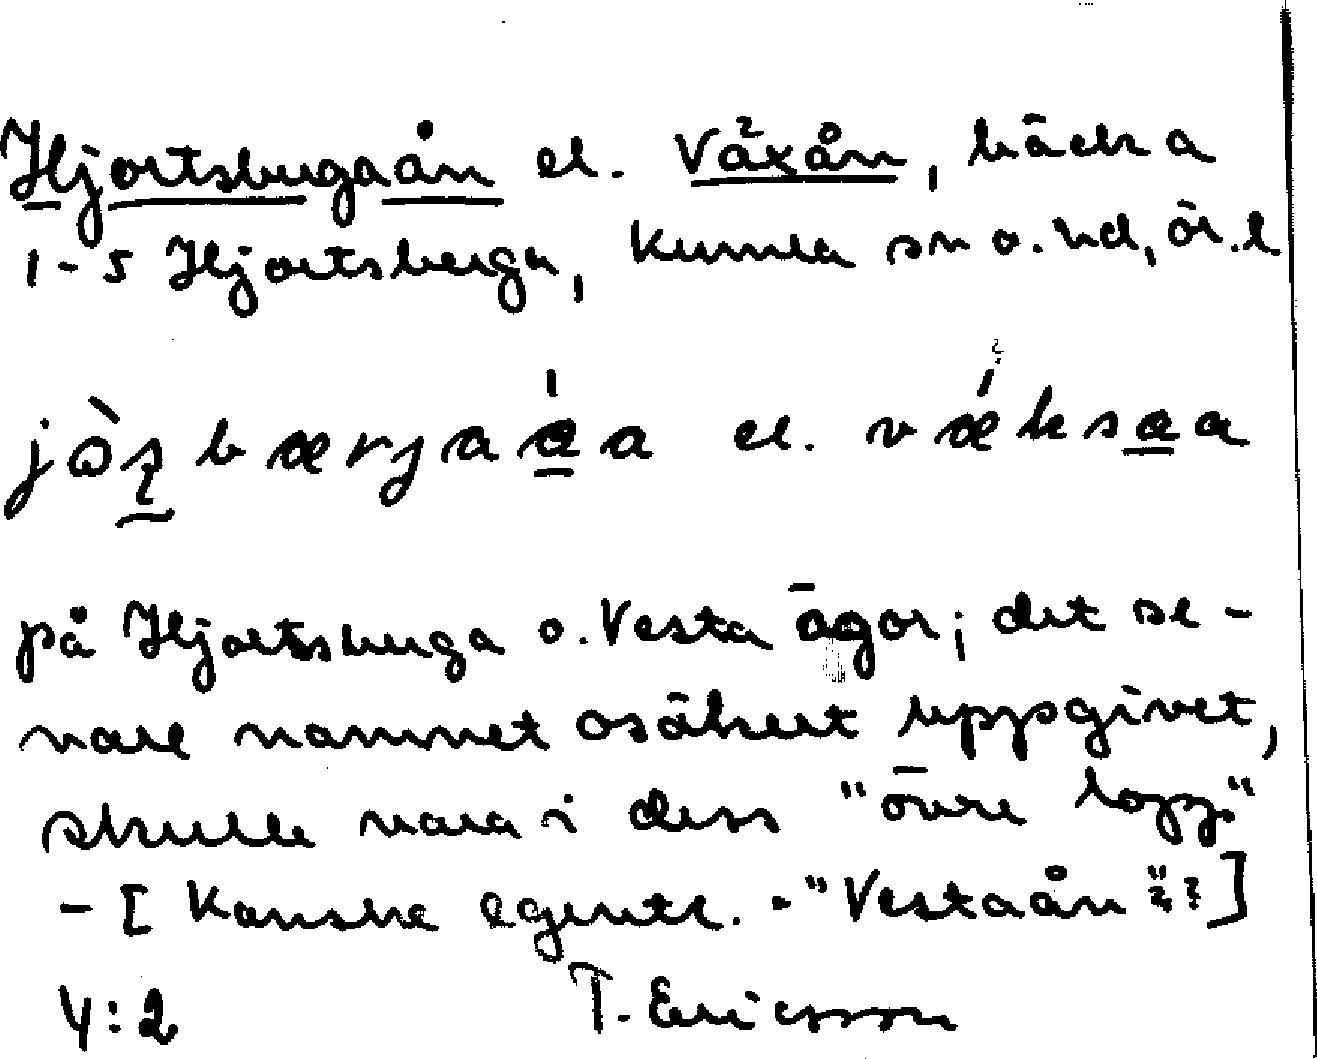 Hjortsbergaån el. Växån, bäck a
1-5 Hjortsberga, Kumla sn o. hd, ör. l
på Hjortsberga o. Vesta ägor; det se-
nare namnet osäkert uppgivet,
skulle vara i dess "övre lopp"
- [Kanske egentl. - "Vestaån"??]
4:2 T. Ericsson